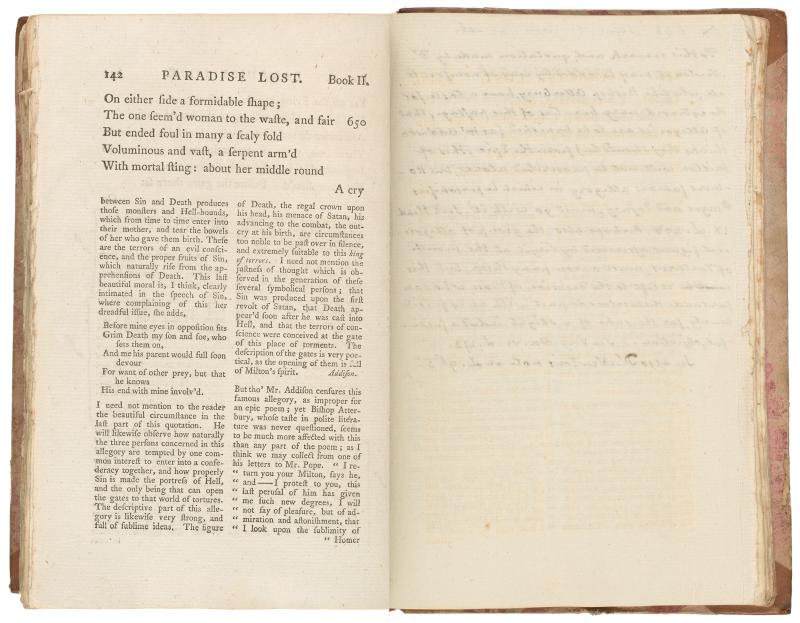 142 PARADISE LOST. Book II.
On either ſide a formidable ſhape;
The one ſeem'd woman to the waſte, and fair 650
But ended foul in many a ſcaly fold
Voluminous and vaſt, a ſerpent arm'd
With mortal ſting: about her middle round
A cry
between Sin and Death produces
thoſe monſters and Hell-hounds,
which from time to time enter into
their mother, and tear the bowels
of her who gave them birth. Theſe
are the terrors of an evil conſci-
ence, and the proper fruits of Sin,
which naturally riſe from the ap-
prehenſions of Death. This laſt
beautiful moral is, I think, clearly
intimated in the ſpeech of Sin,
where complaining of this her
dreadful iſſue, ſhe adds,
Before mine eyes in oppoſition ſits
Grim Death my ſon and foe, who
ſets them on,
And me his parent would full ſoon
devour
For want of other prey, but that
he knows
His end with mine involv'd.
I need not mention to the reader
the beautiful circumſtance in the
laſt part of this quotation. He
will likewiſe obſerve how naturally
the three perſons concerned in this
allegory are tempted by one com-
mon intereſt to enter into a confe-
deracy together, and how properly
Sin is made the portreſs of Hell,
and the only being that can open
the gates to that world of tortures.
The deſcriptive part of this alle-
gory is likewiſe very ſtrong, and
full of ſublime ideas. The figure
of Death, the regal crown upon
his head, his menace of Satan, his
advancing to the combat, the out-
cry at his birth, are circumſtances
too noble to be paſt over in ſilence,
and extremely ſuitable to this king
of terrors. I need not mention the
juſtneſs of thought which is ob-
ſerved in the generation of theſe
ſeveral ſymbolical perſons; that
Sin was produced upon the firſt
revolt of Satan, that Death ap-
pear'd ſoon after he was caſt into
Hell, and that the terrors of con-
ſcience were conceived at the gate
of this place of torments. The
deſcription of the gates is very poe-
tical, as the opening of them is full
of Milton's ſpirit. Addiſon.
But tho' Mr. Addiſon cenſures this
famous allegory, as improper for
an epic poem; yet Biſhop Atter-
bury, whoſe taſte in polite litera-
ture was never queſtioned, ſeems
to be much more affected with this
than any part of the poem; as I
think we may collect from one of
his letters to Mr. Pope. " I re-
" turn you your Milton, ſays he,
" and —— I proteſt to you, this
" laſt peruſal of him has given
" me ſuch new degrees, I will
" not ſay of pleaſure, but of ad-
" miration and aſtoniſhment, that
" I look upon the ſublimity of
" Homer